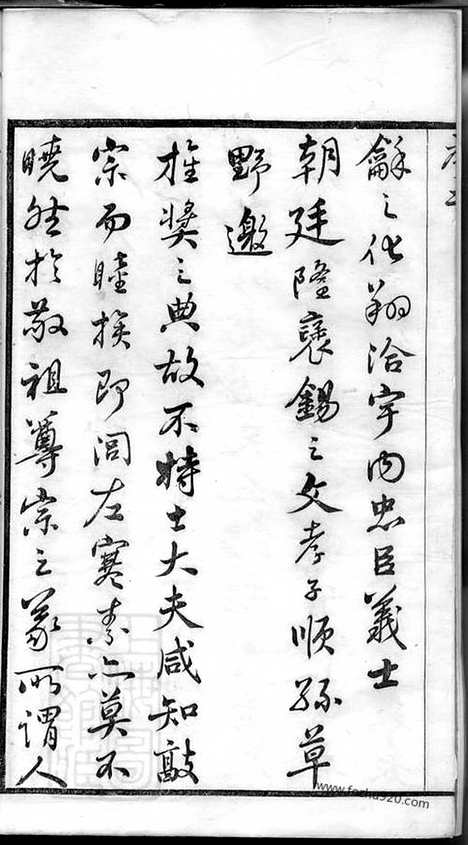 龢之化翔洽宇內忠臣義士
朝廷隆褒錫之文孝子順孫草
野邀
旌獎之典故不特士大夫咸知敦
宗而睦族即閭左寒素亦莫不
曉然於敬祖尊宗之義所謂人
www.fosha920.com